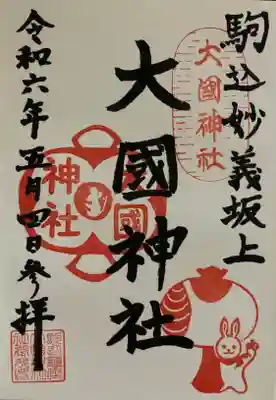 駒込妙義坂上
大國神社
大國神社
神社
國
令和六年五月四日参拝